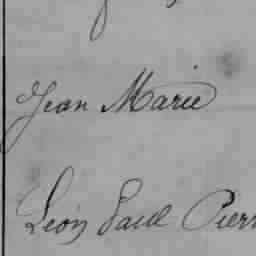 Jean Marie
Léon Paul Pierr